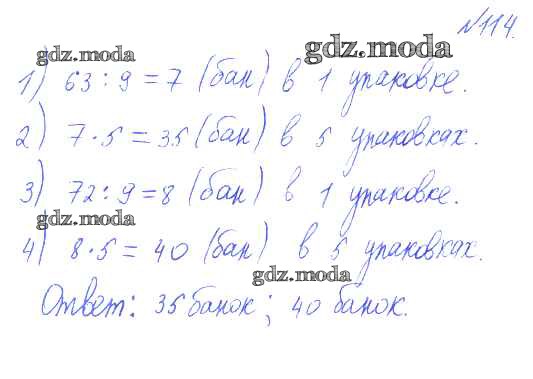 №114.
gdz.moda
gdz.moda
1) 63 : 9 = 7 (бан) в 1 упаковке.
2) 7 · 5 = 35 (бан) в 5 упаковках.
3) 72 : 9 = 8 (бан) в 1 упаковке.
gdz.moda
4) 8 · 5 = 40 (бан) в 5 упаковках.
gdz.moda
Ответ: 35 банок; 40 банок.